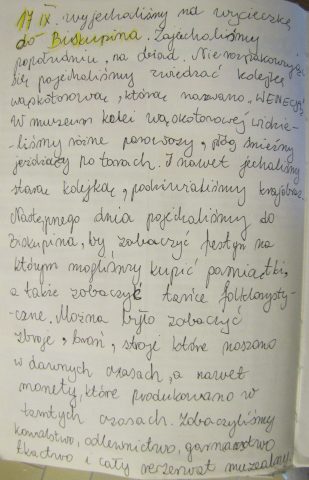 17 IX. wyjechaliśmy na wycieczkę
do Biskupina. Zajechaliśmy
popołudniu, na obiad. Nie rozpakowując
się pojechaliśmy zwiedzać kolejkę
wąskotorową, którą nazwano „WENECJĄ".
W muzeum kolei wąskotorowej widzie-
-liśmy różne parowozy, pług śnieżny
jeżdżący po torach. I nawet jechaliśmy
starą kolejką, podziwialiśmy krajobraz.
Następnego dnia pojechaliśmy do
Biskupina, by zobaczyć festyn na
którym mogliśmy kupić pamiątki,
a także zobaczyć tańce folklorysty-
-czne. Można było zobaczyć
zbroje, broń, stroje które noszono
w dawnych czasach, a nawet
monety, które produkowano w
tamtych czasach. Zobaczyliśmy
kowalstwo, odlewnictwo, garncarstwo
tkactwo i cały rezerwat muzealny.